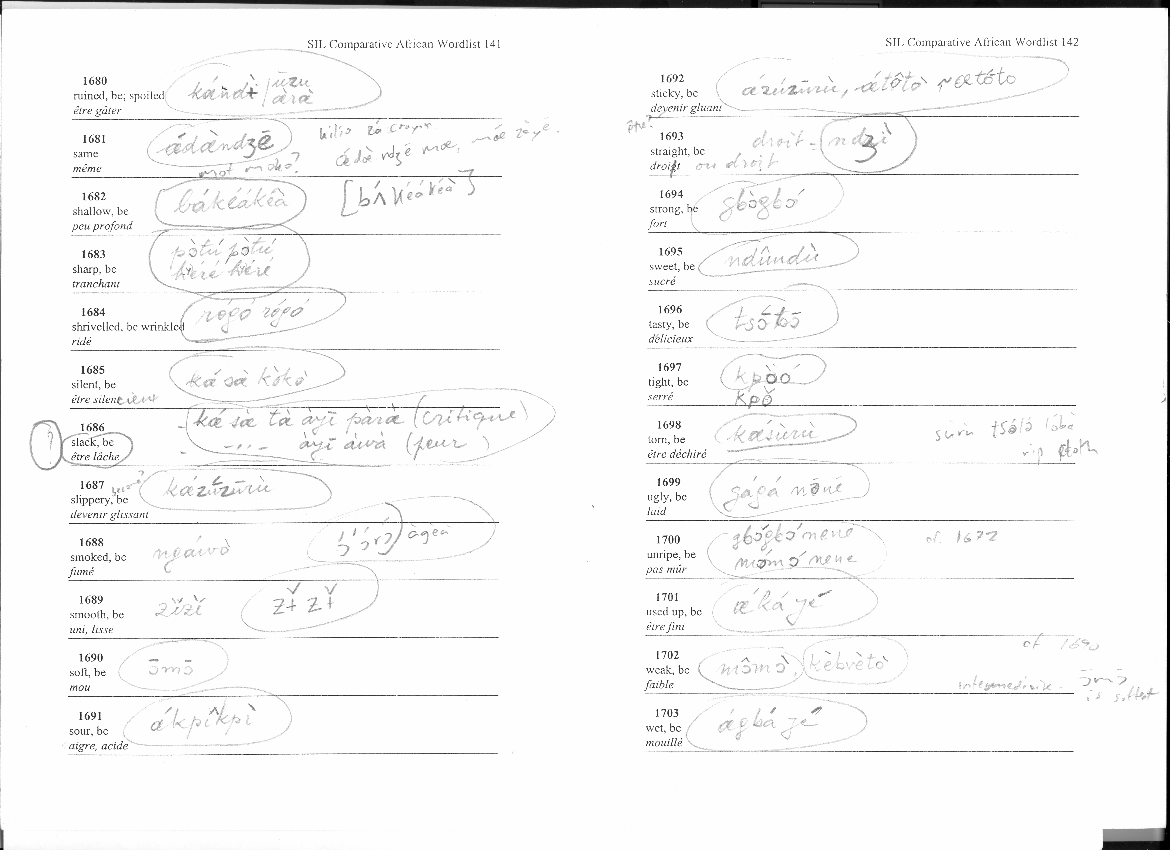 SIL Comparative African Wordlist 141
1680
ruined, be; spoiled
être gâter
1681
same
même
ǽdàndʒē
mot moko?
1682
shallow, be
peu profond
bákéákéà
[bʌ́kéákéà]
1683
sharp, be
tranchant
pɔ̀tú pɔ̀tú
1684
shrivelled, be wrinkled
ridé
rógó rógó
1685
silent, be
être silencieux
kǽ sæ̀ kòkò
1686
slack, be
être lâche
?
kǽ sæ̀ tà àyī pàræ̀ (critique)
àyī àwà (peur)
1687
slippery, be
devenir glissant
kǽzúzūrù
1688
smoked, be
fumé
àgeà
1689
smooth, be
uni, lisse
zɨ̌ zɨ̌
1690
soft, be
mou
ɔ̄mɔ̄
1691
sour, be
aigre, acide
ǽkpîkpì
SIL Comparative African Wordlist 142
1692
sticky, be
devenir gluant
ǽzúzūrù, ǽtôtò ~ ætóto
être?
1693
straight, be
droit ou droit
droit = ndʒì
1694
strong, be
fort
gbògbó
1695
sweet, be
sucré
ndûndù
1696
tasty, be
délicieux
tsɔ́bɔ̄
1697
tight, be
serré
1698
torn, be
être déchiré
kǽsùrù
rip cloth
1699
ugly, be
laid
gágá nēné
1700
unripe, be
pas mûr
gbógbó nené
mómó nene
cf. 1672
1701
used up, be
être fini
ǽkáyé
1702
weak, be
faible
mômò, kèbvètò
cf 1690
intermediate. ɔ̄mɔ̄
is softest
1703
wet, be
mouillé
ǽgbáyé